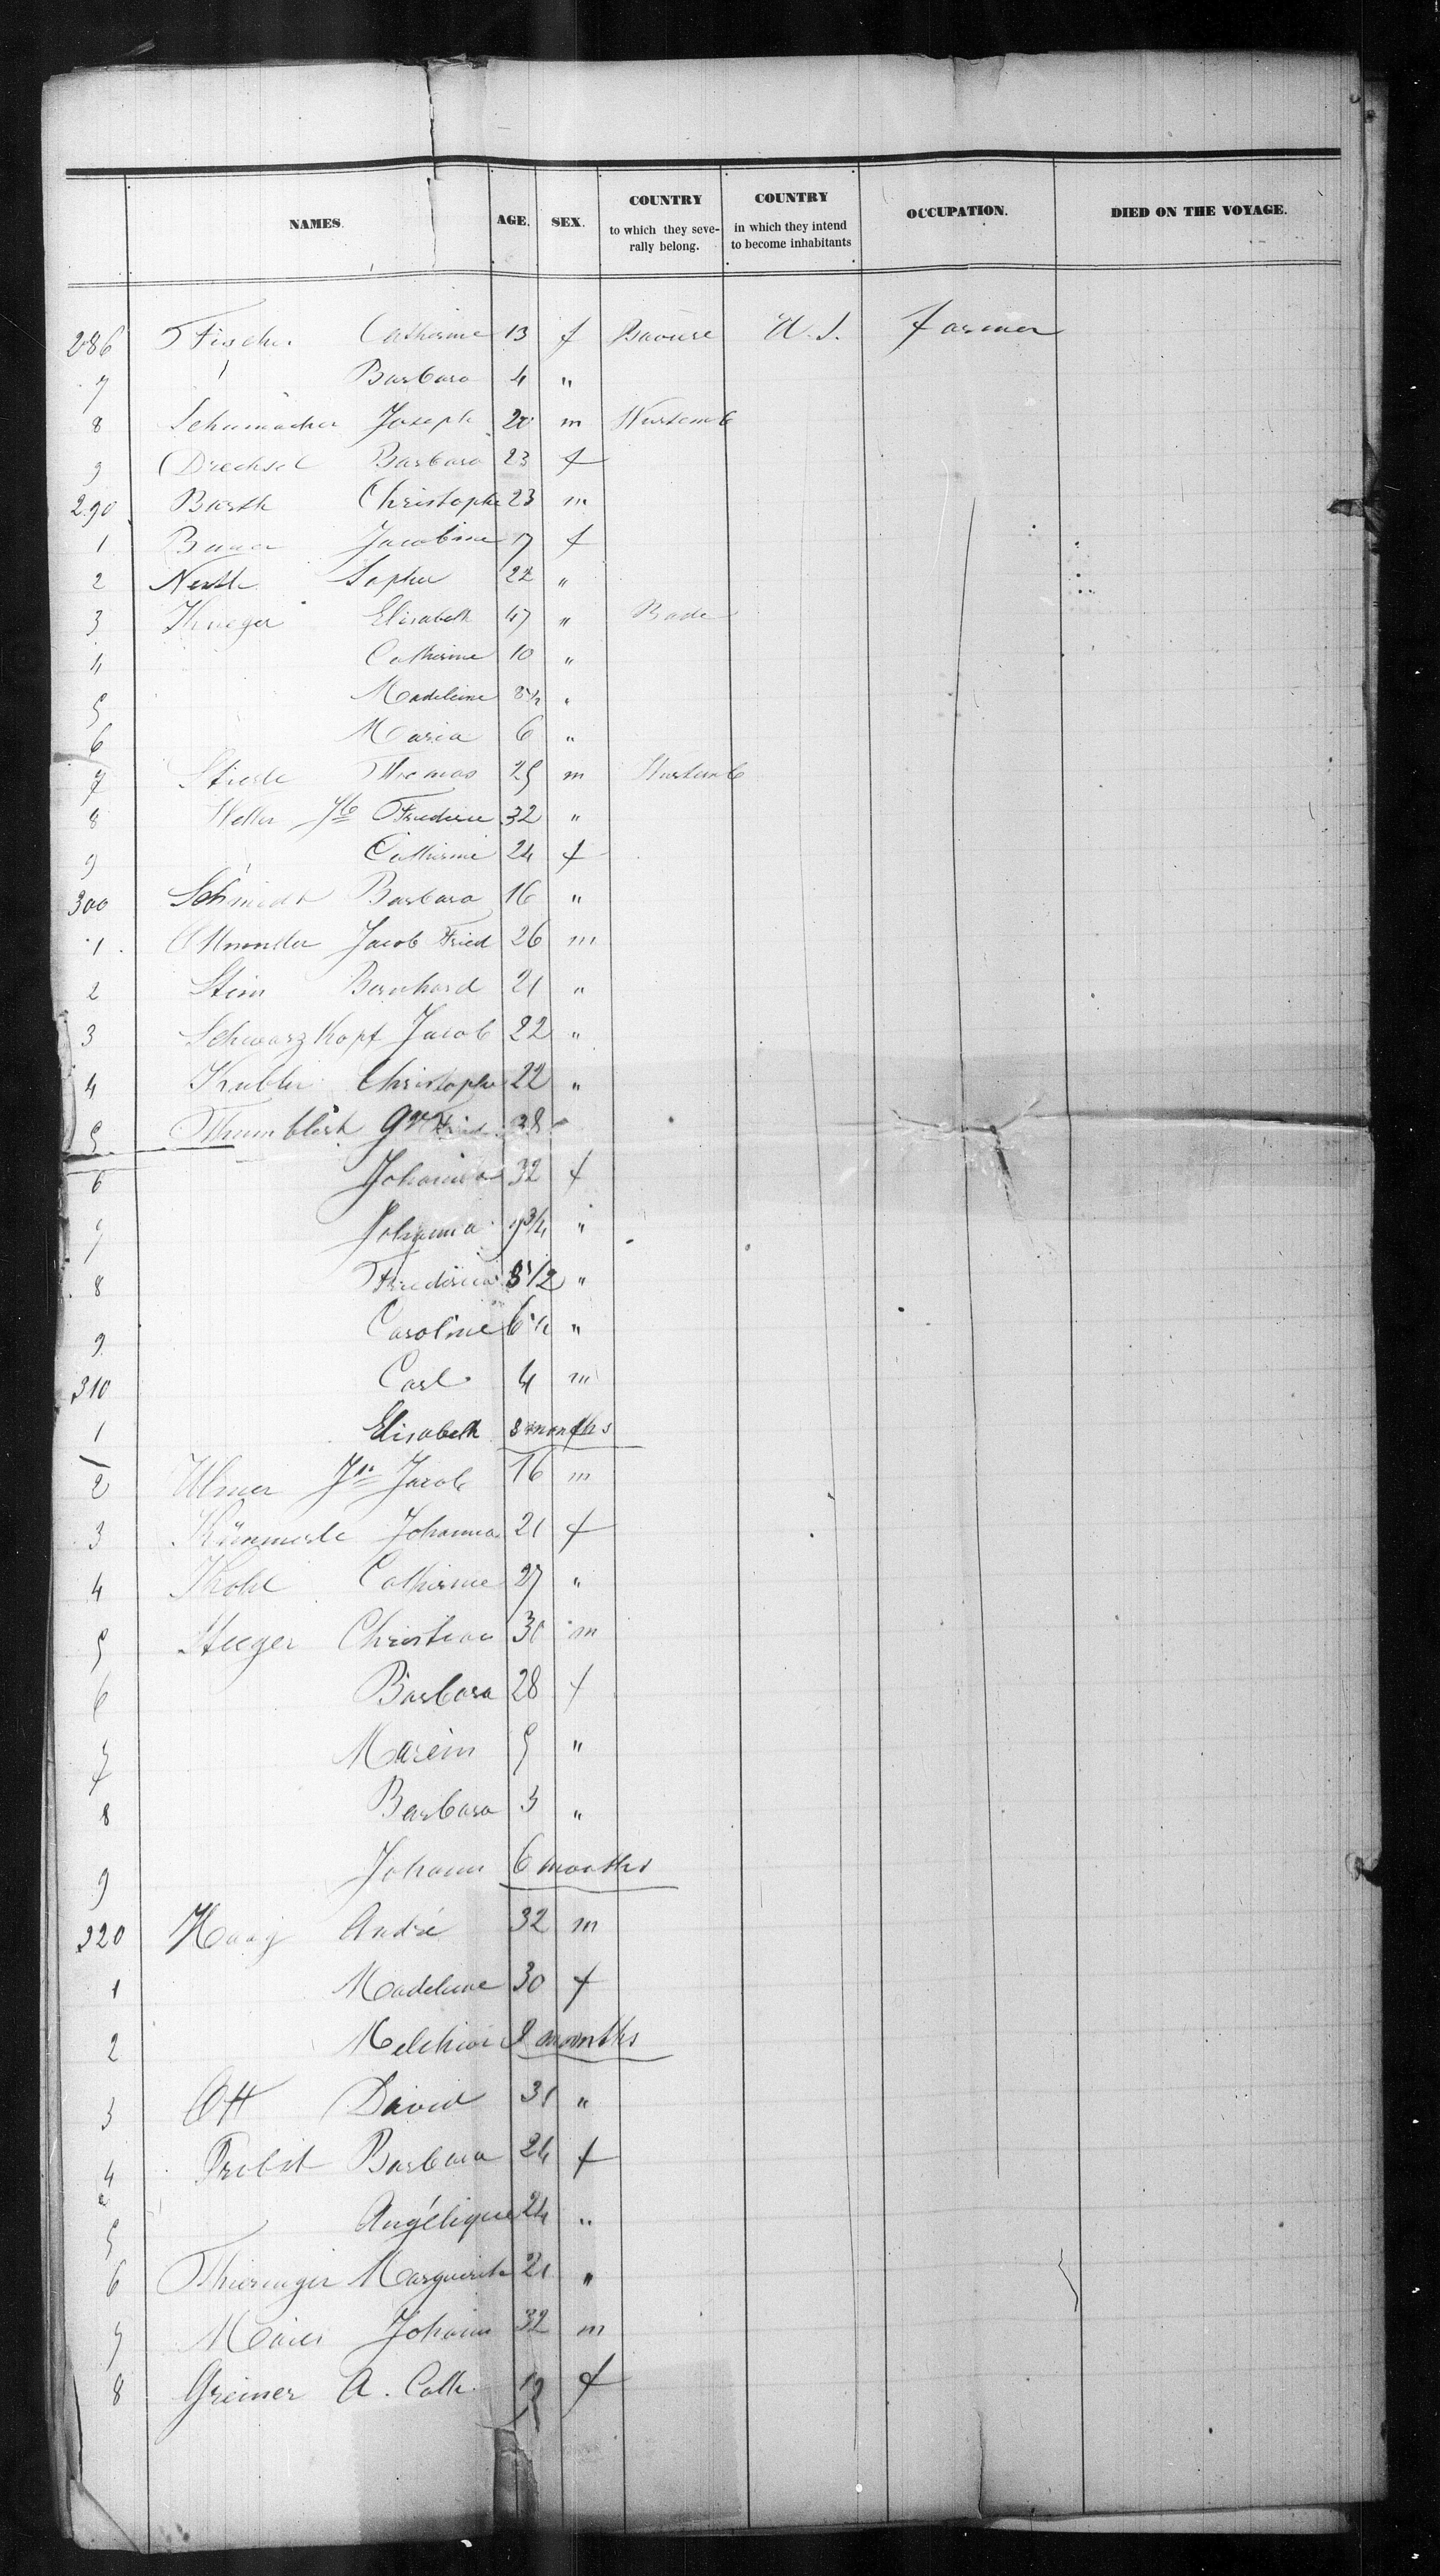 NAMES. AGE. SEX. COUNTRY to which they severally belong. COUNTRY in which they intend to become inhabitants OCCUPATION. DIED ON THE VOYAGE.
286 Fischer Catherine 13 f U. S. farmer
7 Barbara 4 "
8 Schumacher Joseph 20 m Wurtemb
9 Drechsel Barbara 23 f
290 Barth Christophe 23 m
1 Jacobine 17 f
2 22 "
3 Krueger Elisabeth 47 " Bade
4 Catherine 10 "
5 Madeleine 8½ "
6 Maria 6 "
7 Stierle Thomas 25 m Wurtemb
8 Weller 32 "
9 Catherine 24 f
300 Schmidt Barbara 16 "
1 Jacob Fried 26 m
2 Stein Bernhard 21 "
3 Schwarzkopf Jacob 22 "
4 Kubler Christophe 22 "
5 38 "
6 Johanna 32 f
7 Johanna 9¾ "
8 Frederica 8 1/2 "
9 Caroline 6½ "
310 Carl 4 m
1 Elisabeth 8 months
2 Ulmer Jn Jacob 16 m
3 Kümmerle Johanna 21 f
4 Kohl Catherine 27 "
5 Steeger Christian 30 m
6 Barbara 28 f
7 5 "
8 Barbara 3 "
9 Johann 6 months
320 Haag André 32 m
1 Madeleine 30 f
2 Melchior 9 months
3 Ott David 31 "
4 Probst Barbara 24 f
5 Angélique 24 "
6 Thieringer Marguerite 21 "
7 Maier Johann 32 m
8 Greiner A. Cath. 19 f